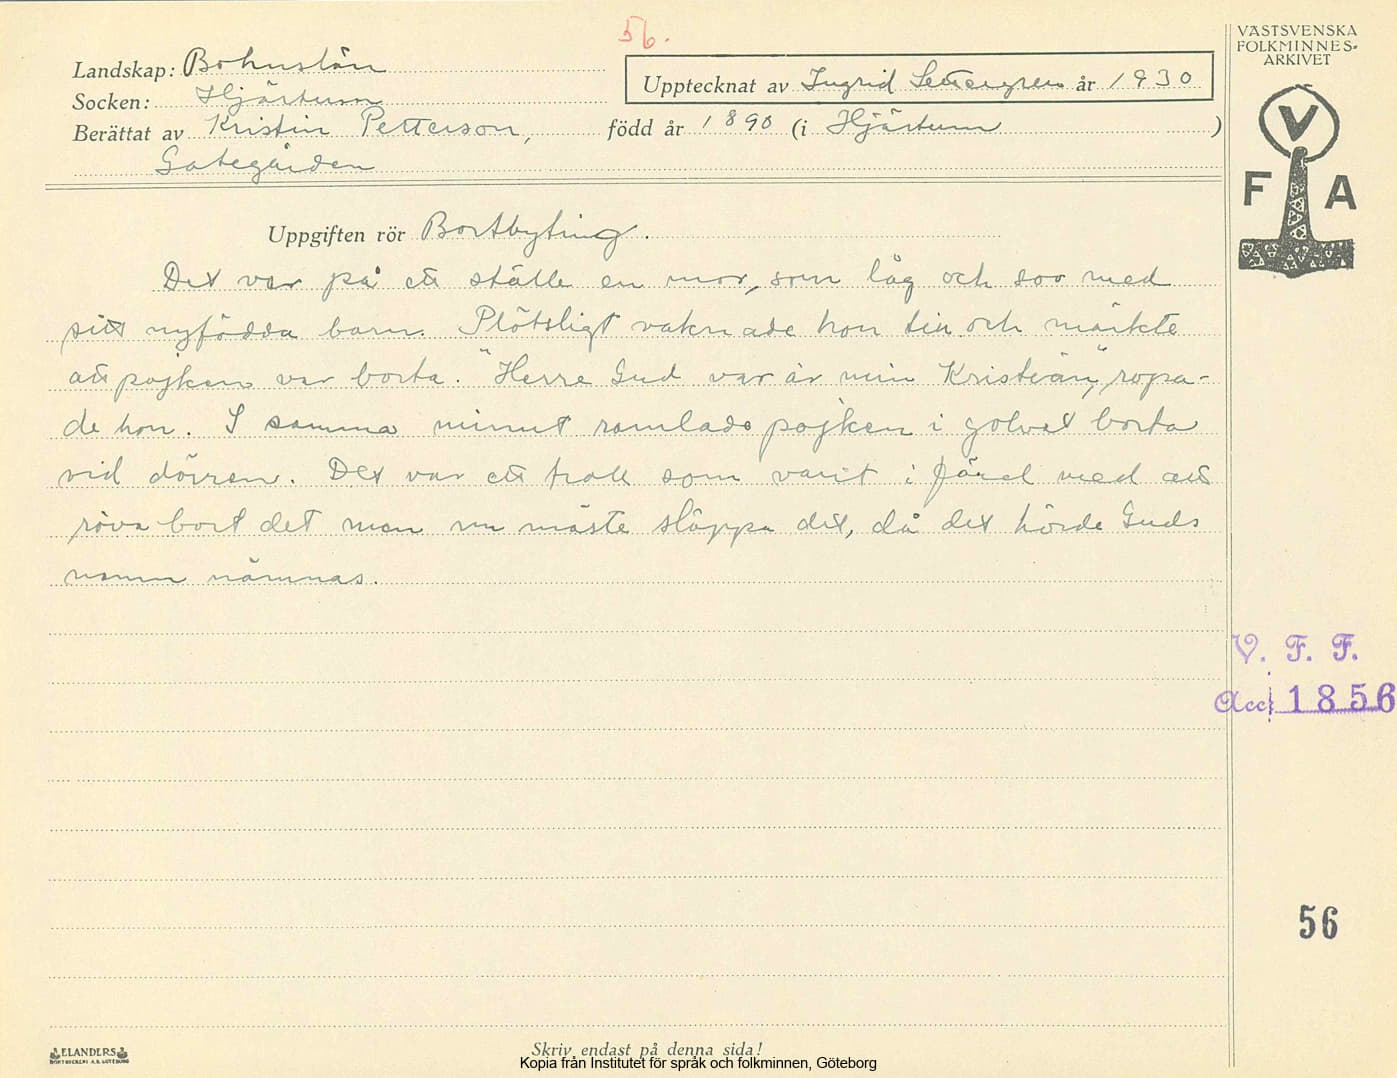 56.
VÄSTSVENSKA
FOLKMINNES-
ARKIVET
Landskap: Bohuslän
Upptecknat av Ingrid Settergren år 1930
Socken: Hjärtum
Berättat av Kristin Petterson, född år 1890 (i Hjärtum )
Gategården
V
F A
Uppgiften rör Bortbyting.
Det var på ett ställe en mor, som låg och sov med
sitt nyfödda barn. Plötsligt vaknade hon till och märkte
att pojken var borta. "Herre Gud var är min Kristian", ropa-
de hon. I samma minut ramlade pojken i golvet borta
vid dörren. Det var ett troll som varit i färd med att
röva bort det men nu måste släppa det, då det hörde Guds
namn nämnas.
V. F. F.
Acc: 1856
56
ELANDERS
BOKTRYCKERI A.B. GÖTEBORG
Skriv endast på denna sida!
Kopia från Institutet för språk och folkminnen, Göteborg